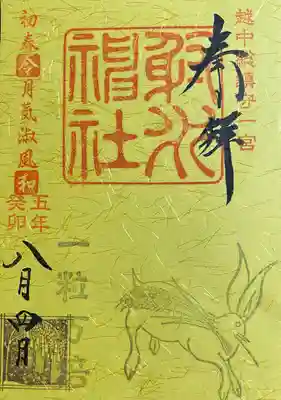 越中総鎮守一宮
奉拝
射水
神社
一粒万倍
初春令月気淑風和
五年
癸卯
八月四日